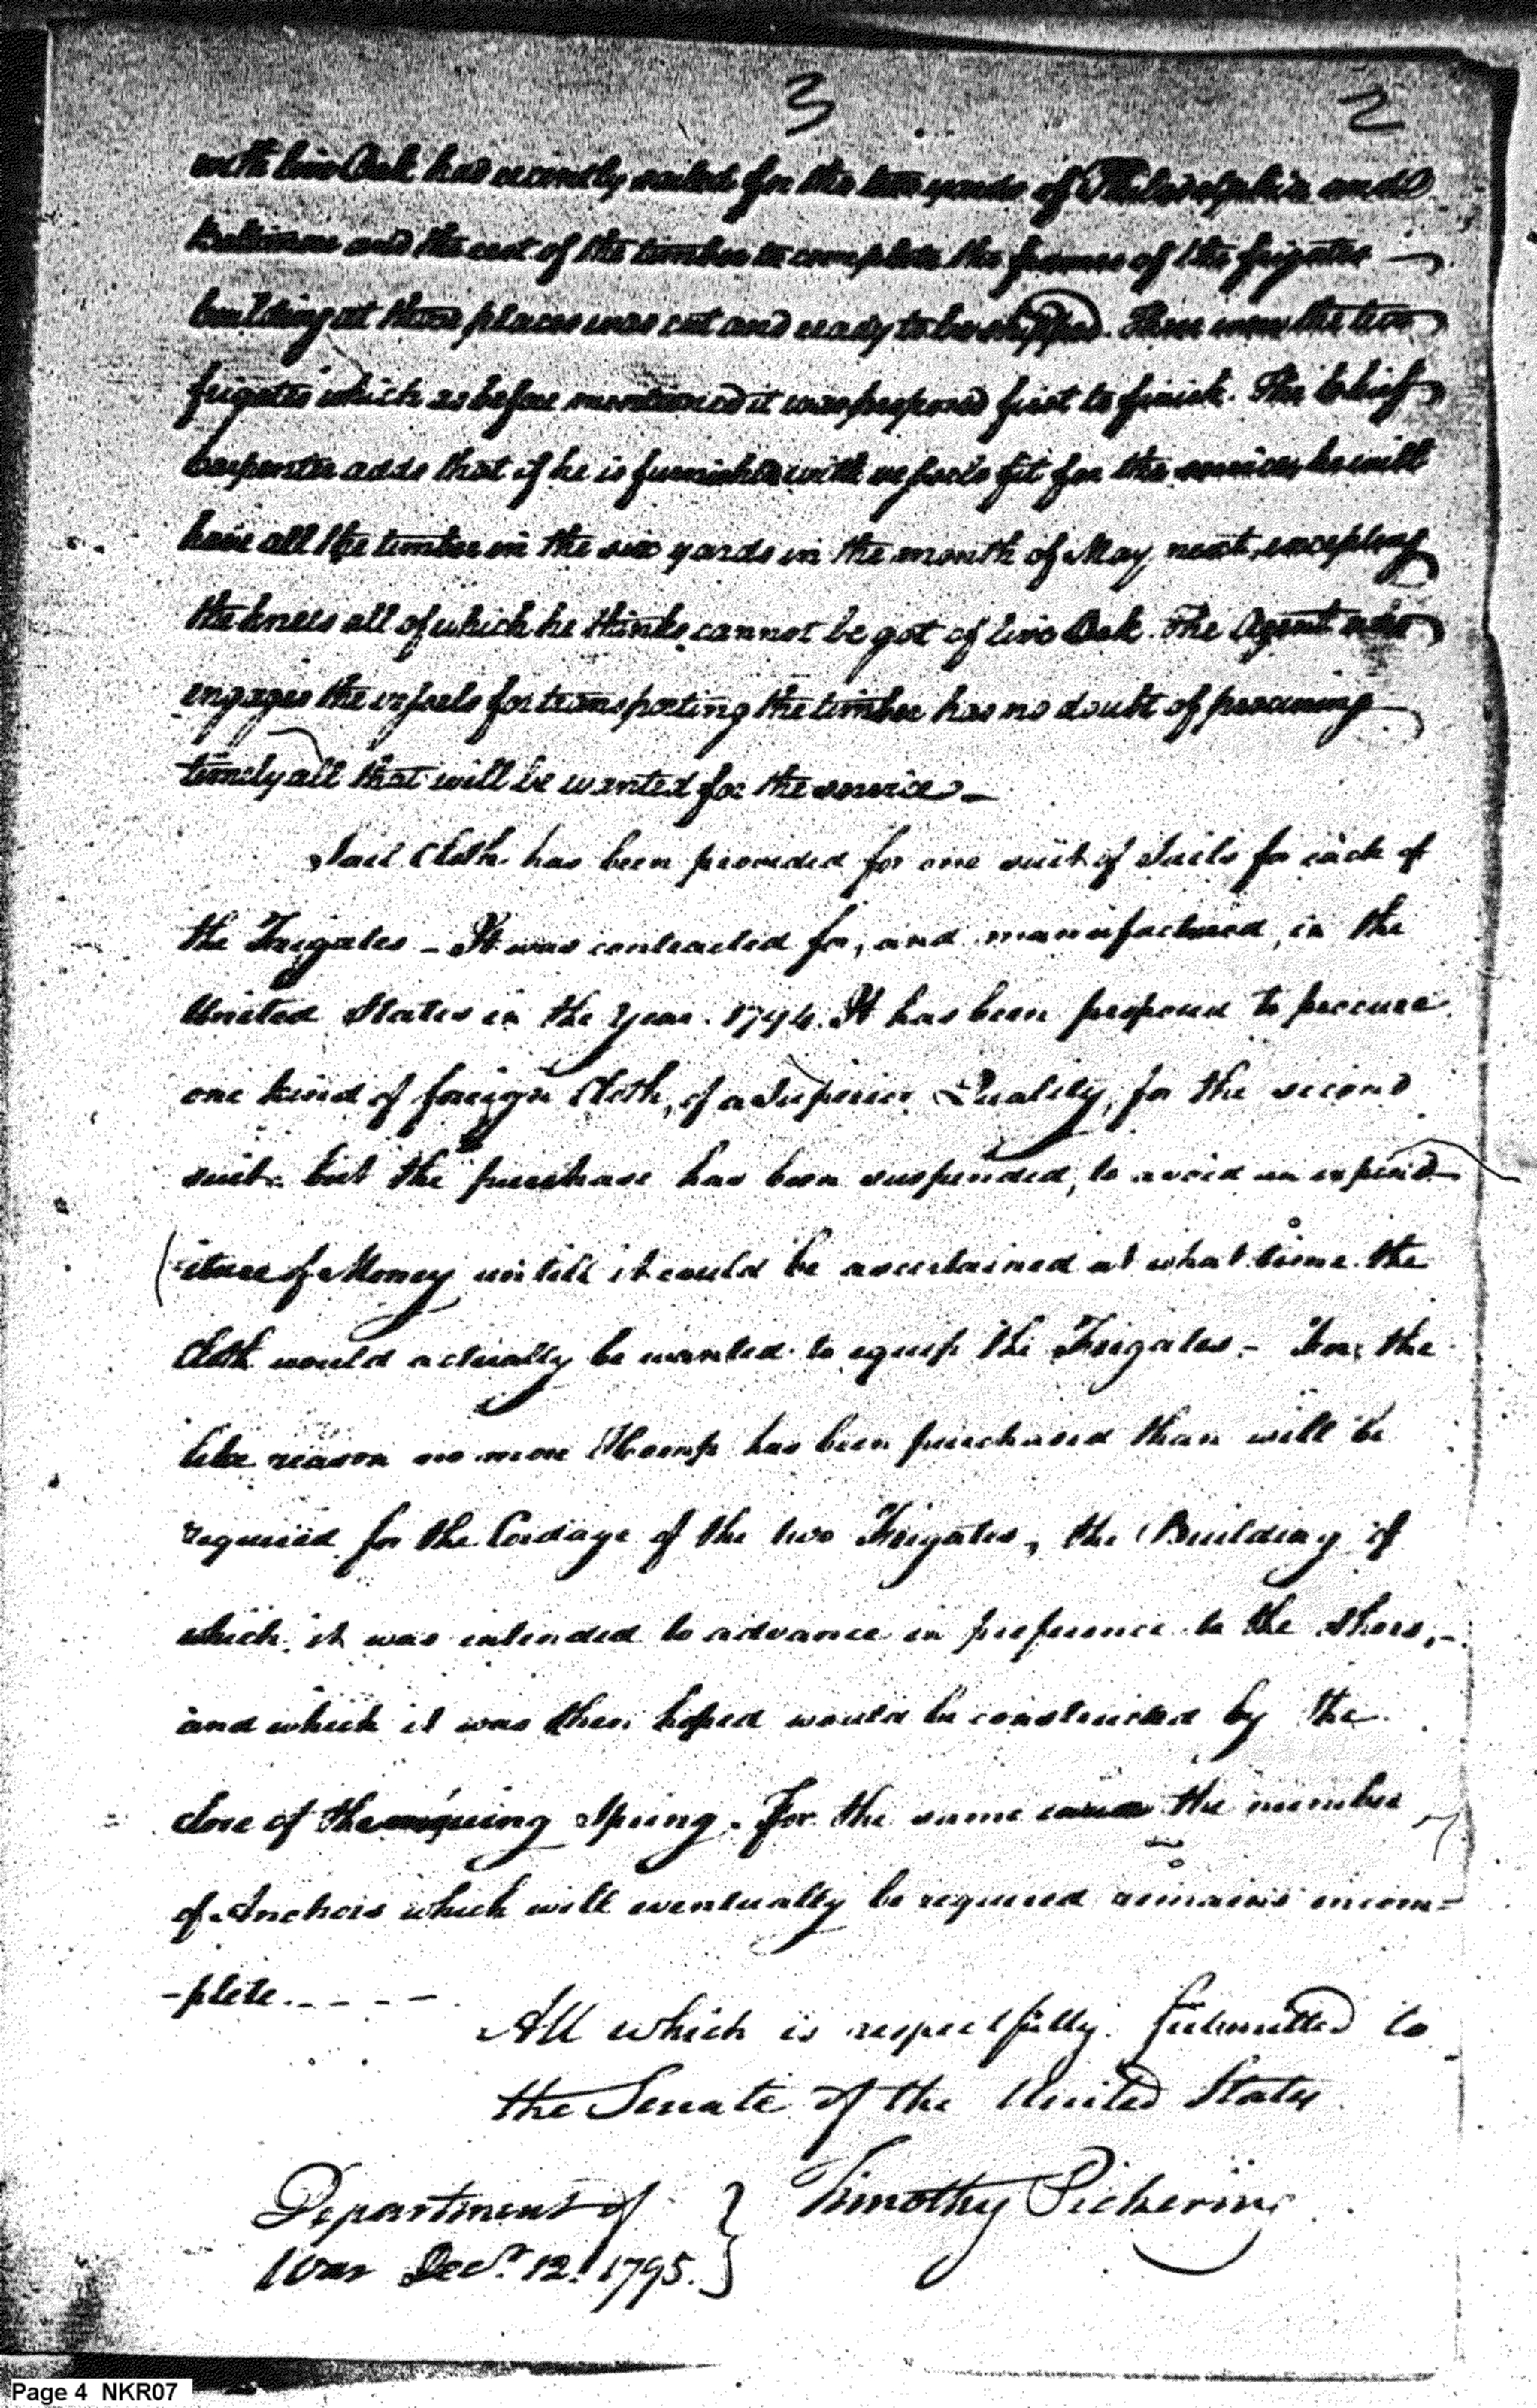 3 2
with live Oak has recently sailed for the two yards of Philadelphia and
Baltimore and the rest of the timber to complete the frames of the frigates
building at those places was cut and ready to be shipped. These were the two
frigates which as before mentioned it was proposed first to finish. The Chief
Carpenter adds that if he is furnished with vessels fit for the service, he will
have all the timber in the six yards in the month of May next, excepting
the knees all of which he thinks cannot be got of live Oak. The Agent who
engages the vessels for transporting the timber has no doubt of procuring
timely all that will be wanted for the service —
Sail Cloth has been provided for one suit of Sails for each of
the Frigates — It was contracted for, and manufactured, in the
United States in the Year 1794. It has been proposed to procure
one kind of foreign Cloth, of a Superior Quality, for the second
suit. but the purchase has been suspended, to avoid an expend
iture of Money untill it could be ascertained at what time the
Cloth would actually be wanted to equip the Frigates. – For the
like reason no more Hemp has been purchased than will be
required for the Cordage of the two Frigates, the Building of
which it was intended to advance in preference to the others, –
and which it was then hoped would be constructed by the
close of the ensuing Spring. For the same the number
of Anchors which will eventually be required remains incom=
-plete. - - - -
All which is respectfully Submitted to
the Senate of the United States
Department of } Timothy Pickering
War Decr. 12. 1795.
Page 4 NKR07